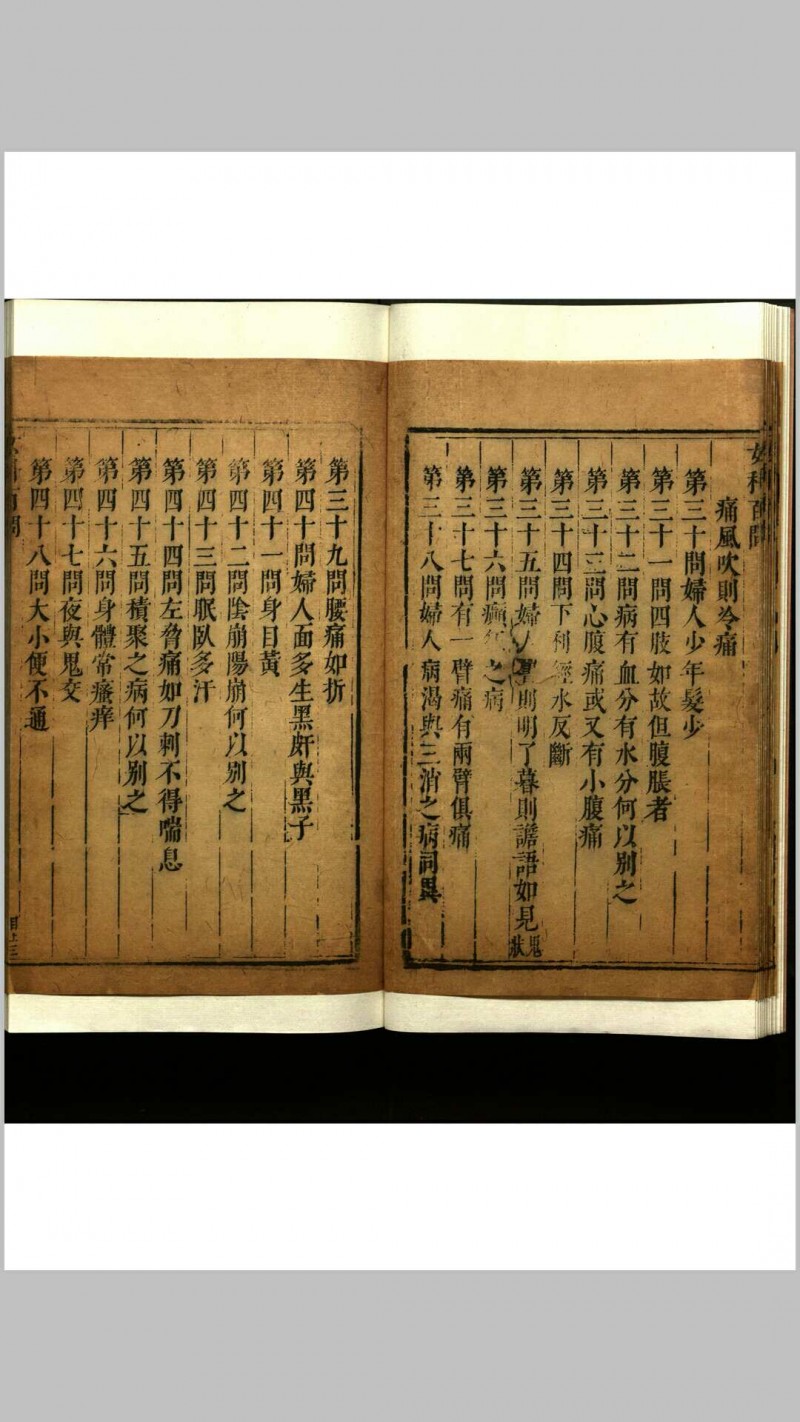 女科百問
痛風吹則冷痛
第三十問婦人少年髮少
第三十一問四肢如故但腹脹者
第三十二問病有血分有水分何以别之
第三十三問心腹痛或又有小腹痛
第三十四問下利經水反斷
第三十五問婦人 則明了暮則譫語如見鬼狀
第三十六問癲 之病
第三十七問有一臂痛有兩臂俱痛
第三十八問婦人病渴與三消之病同異
第三十九問腰痛如折
第四十問婦人面多生黑䵟與黑子
第四十一問身目黃
第四十二問陰崩陽崩何以别之
第四十三問眠臥多汗
第四十四問左脅痛如刀刺不得喘息
第四十五問積聚之病何以别之
第四十六問身體常瘙痒
第四十七問夜與鬼交
第四十八問大小便不通
百問
目上三